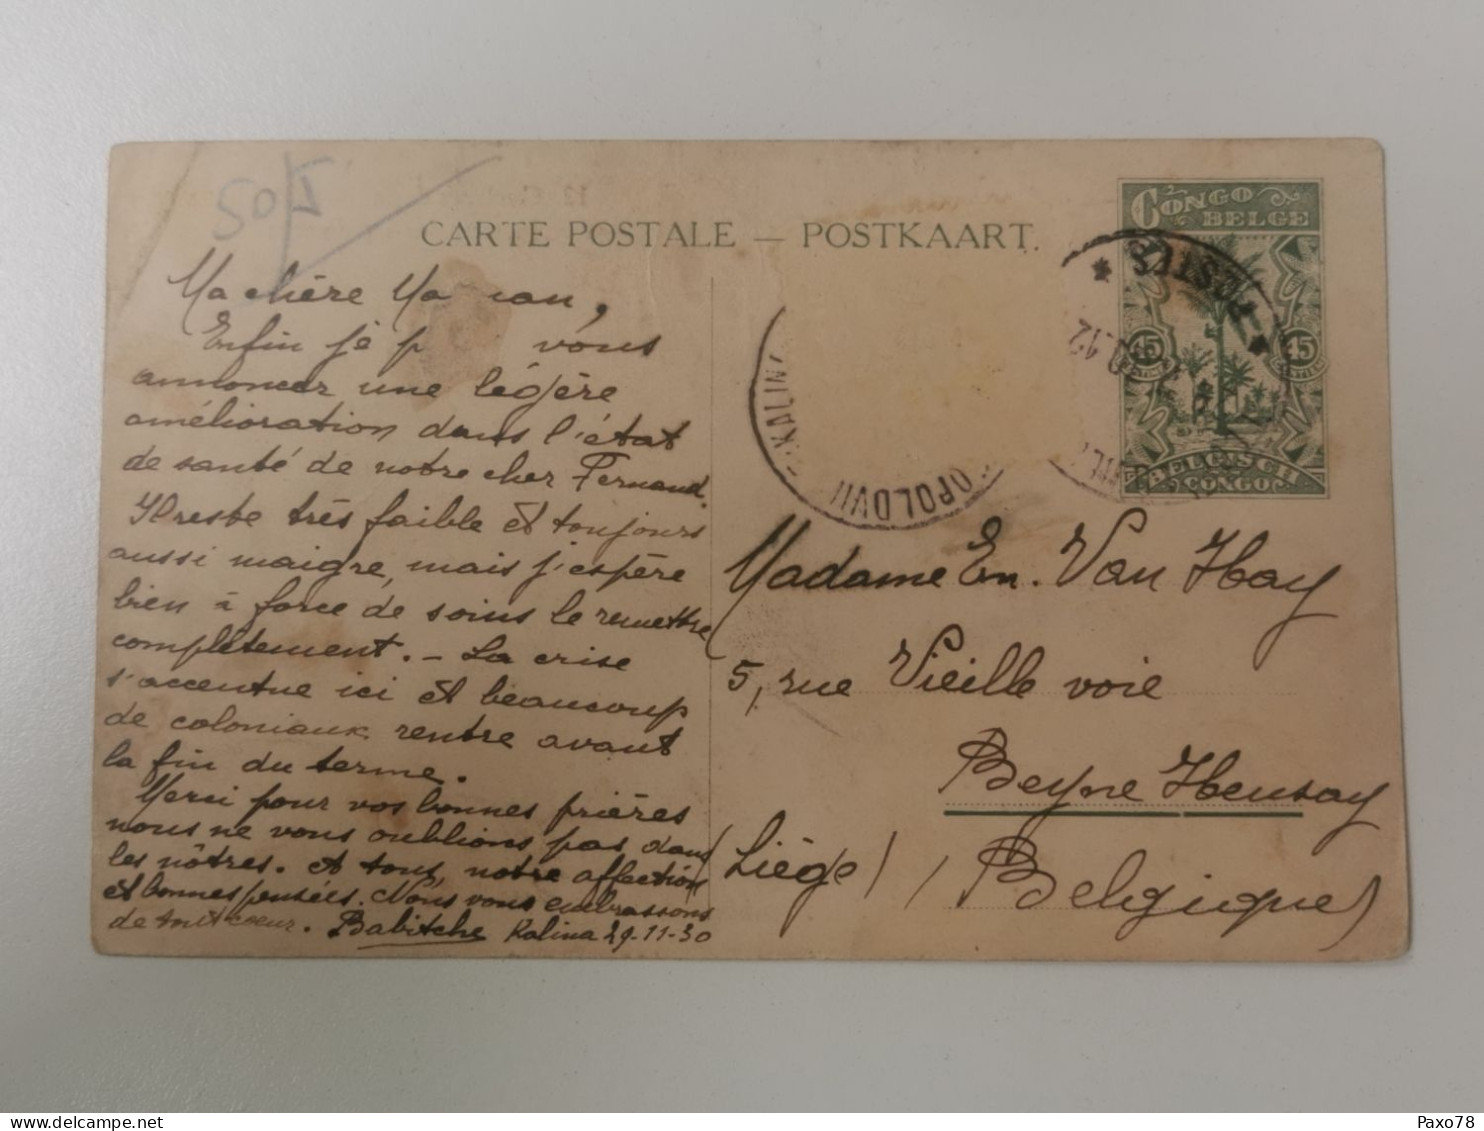 50f
CARTE POSTALE — POSTKAART.
CONGO
BELGE
15 15
BELGISCH
CONGO
POSTES
KALINA
OPOLDVIL
Ma chère Ma an,
Enfin je p vous
annoncer une légère
amélioration dans l'état
de santé de notre cher Fernand.
Il reste très faible et toujours
aussi maigre, mais j'espère
bien à force de soins le remettre
complètement. - La crise
s'accentue ici et beaucoup
de coloniaux rentre avant
la fin du terme.
Merci pour vos bonnes prières
nous ne vous oublions pas dans
les nôtres. A tous, notre affection
et bonnes pensées. Nous vous embrassons
de tout coeur. Babitche Kalina 29-11-30
Madame Em. Van Hay
5, rue Vieille voie
Beyne Heusay
(Liège) Belgique
Paxo78